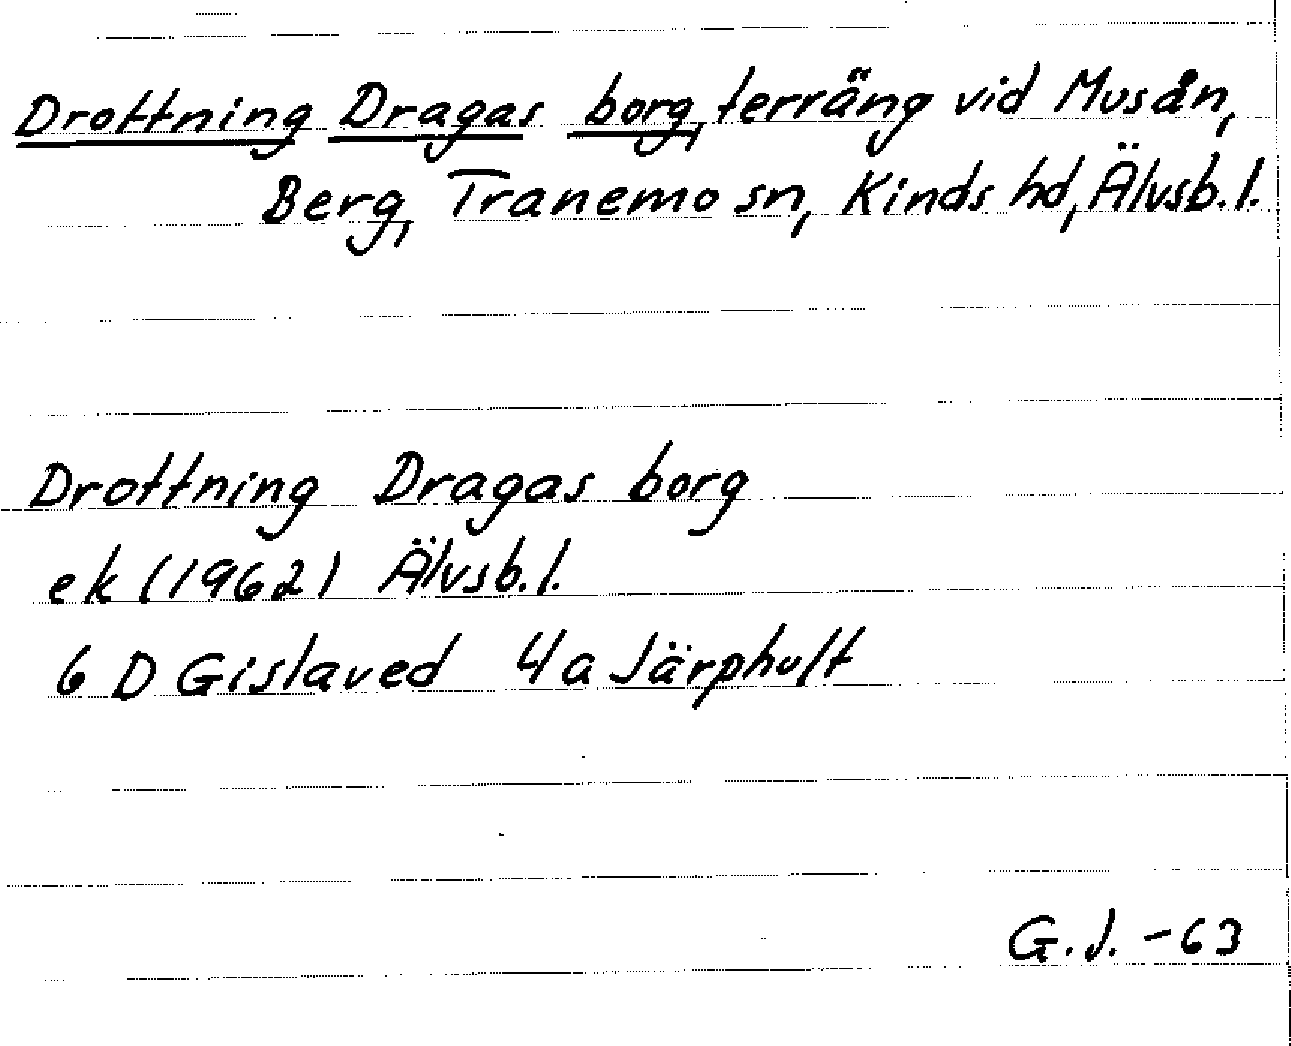 Drottning Dragas borg, terräng vid Musån,
Berg, Tranemo sn, Kinds hd, Älvsb. l.
Drottning Dragas borg
ek (1962) Älvsb. l.
6 D Gislaved 4 a Järphult
G. J. -63